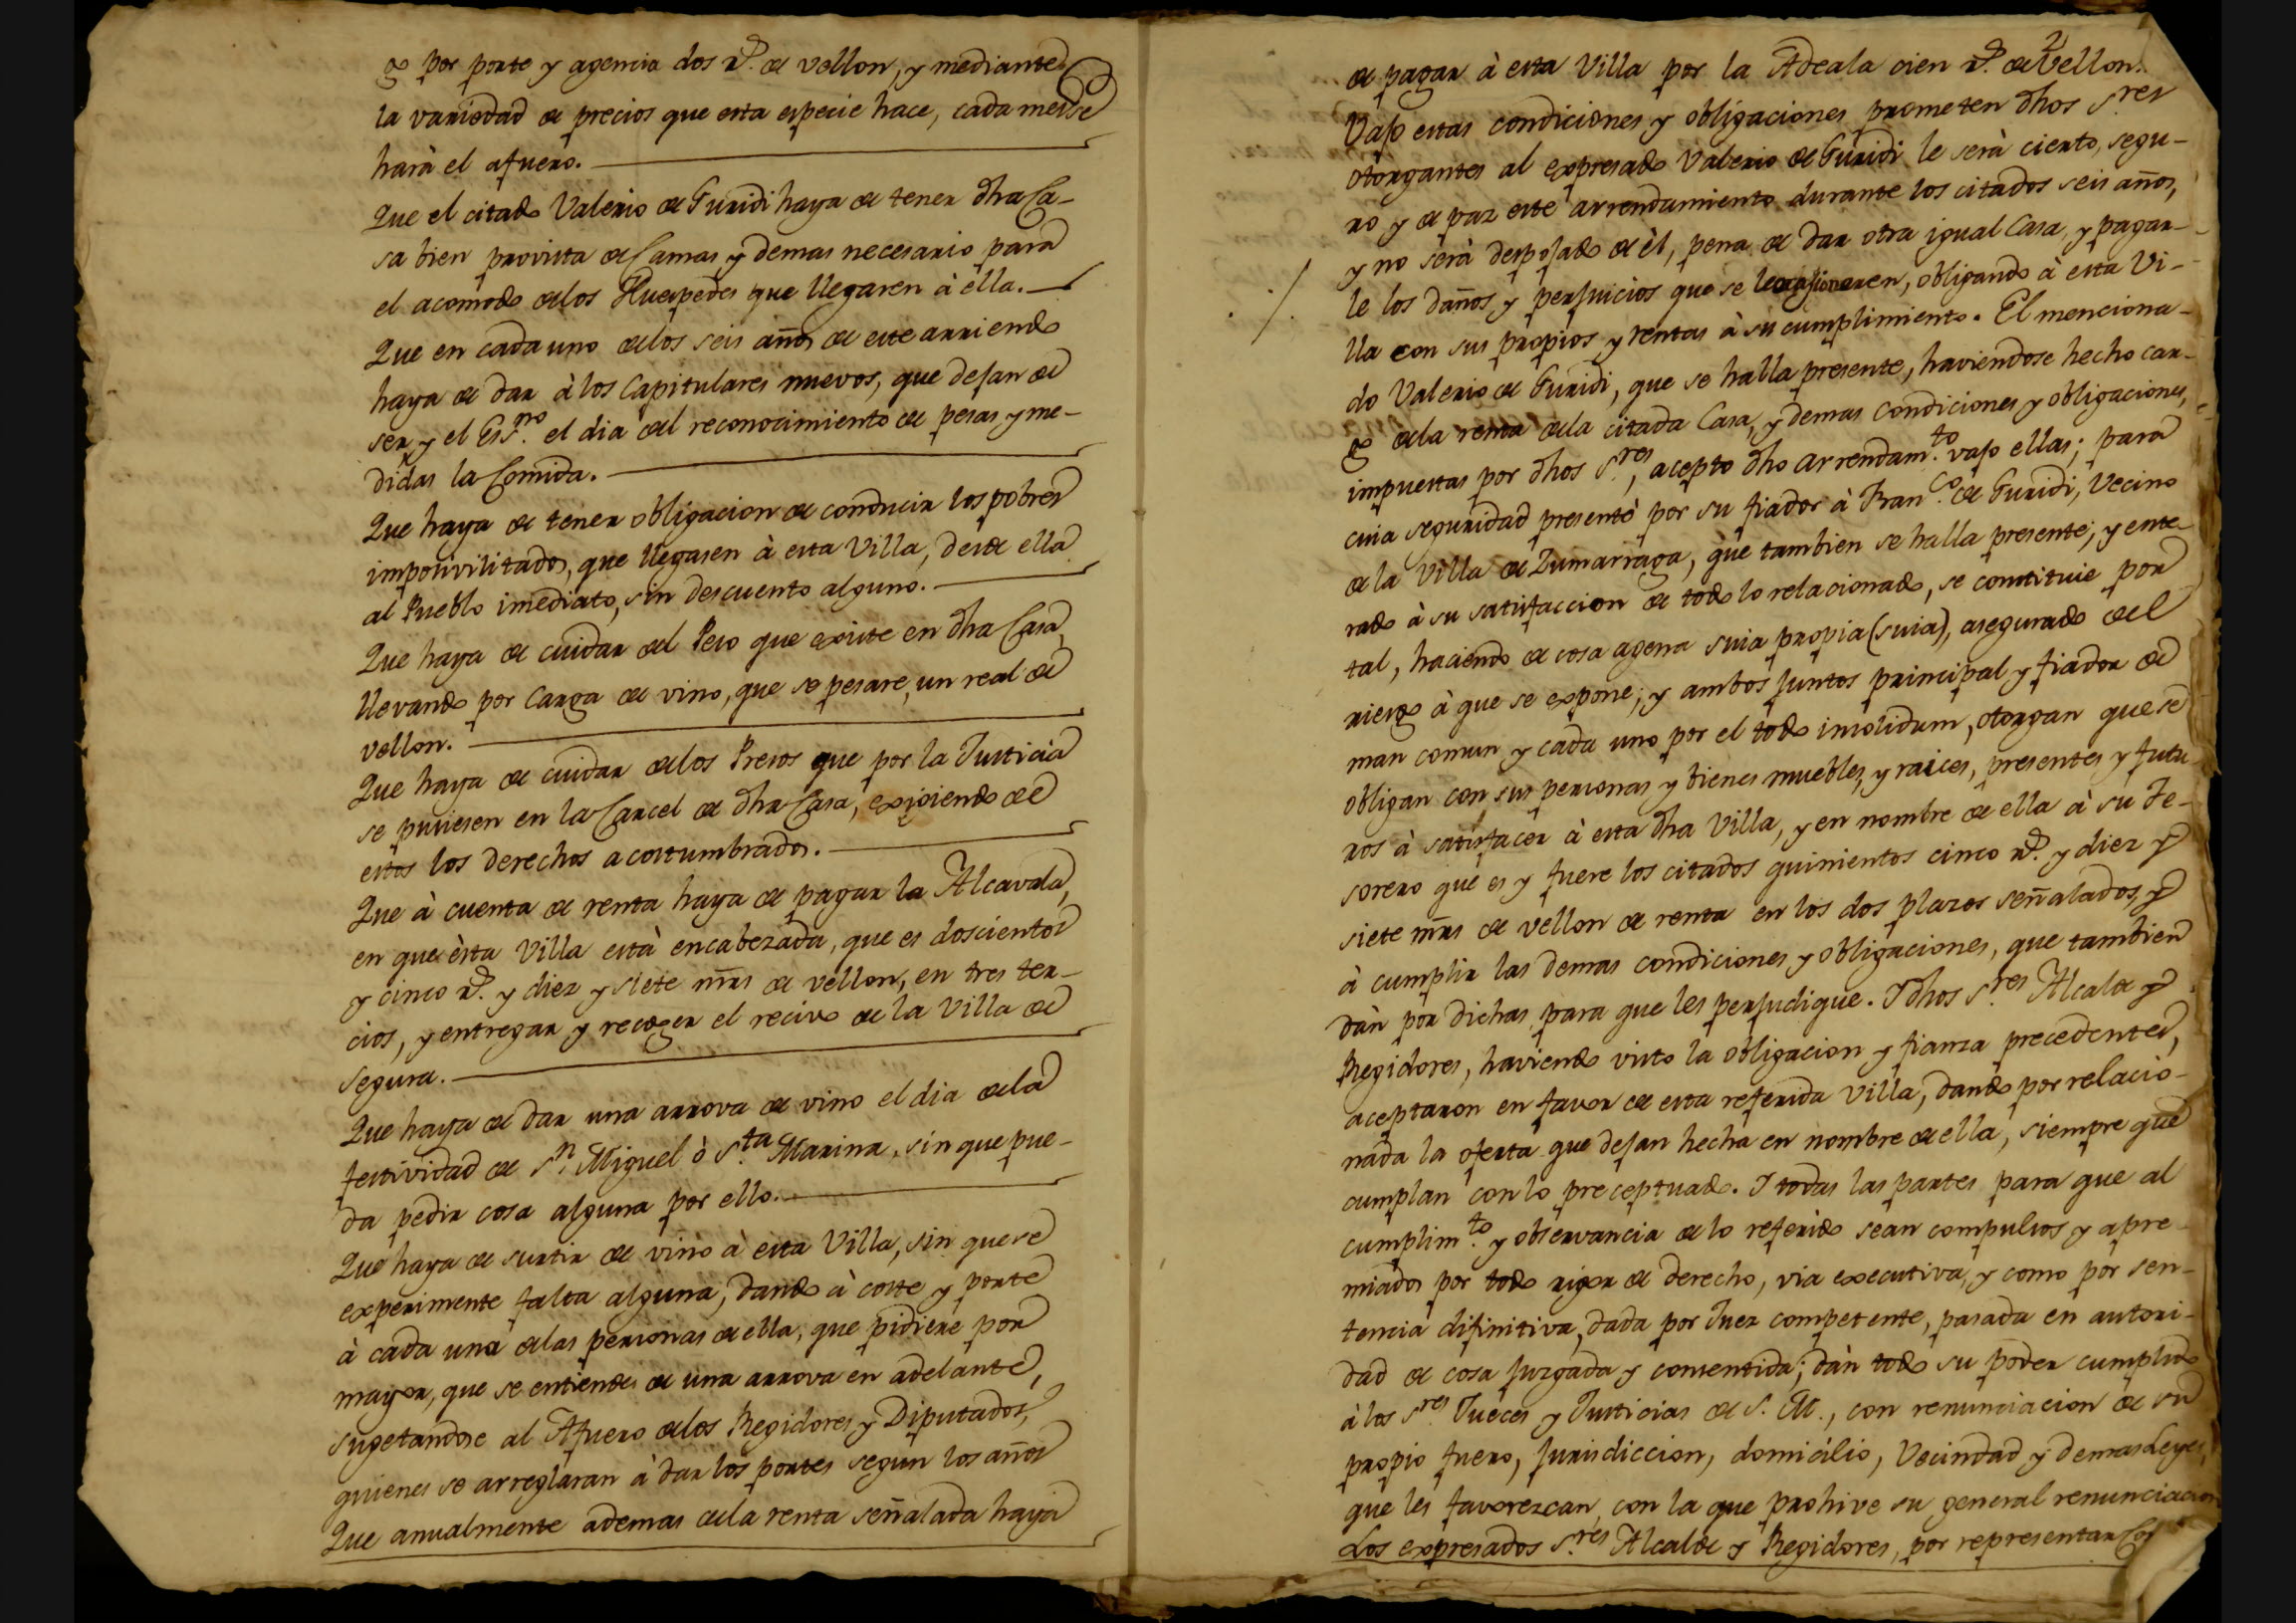 go por porte y agencia dos r.s de vellon, y mediante
la variedad de precios que esta especie hace, cada mes se
harà el afuero.
Que el citado Valerio de Guridi haya de tener dha Ca-
sa bien provista de Camas y demas necesario para
el acomodo de los Huespedes que llegaren à ella.
Que en cada uno de los seis años de este arriendo
haya de dar à los Capitulares nuevos, que dejan de
ser y el Ess.no el dia del reconocimiento de pesas y me-
didas la Comida.
Que haya de tener obligacion de conducir los pobres
imposivilitados, que llegasen à esta Villa, desde ella
al Pueblo imediato, sin descuento alguno.
Que haya de cuidar del Peso que existe en dha Casa,
llevando por carga de vino, que se pesare, un real de
vellon.
Que haya de cuidar de los Presos que por la Justicia
se pusiesen en la Carcel de dha Casa, exigiendo de
estos los derechos acostumbrados.
Que à cuenta de renta haya de pagar la Alcavala,
en que èsta Villa està encabezada, que es doscientos
y cinco r.s y diez y siete mrs de vellon, en tres ter-
cios, y entregar y recoger el recivo de la Villa de
Segura.
Que haya de dar una arrova de vino el dia de la
festividad de S.n Miguel ò S.ta Marina, sin que pue-
da pedir cosa alguna por ello.
Que haya de surtir de vino à esta Villa, sin que se
experimente falta alguna, dando à coste y porte
à cada una de las personas de ella, que pidiere por
mayor, que se entiende de una arrova en adelante,
sugetandose al Afuero de los Regidores y Diputados,
quienes se arreglaran à dar los portes segun los años
Que anualmente ademas de la renta señalada haya
2
de pagar à esta Villa por la Adeala cien r.s de Vellon.
Vajo estas condiciones y obligaciones prometen dhos S.res
otorgantes al expresado Valerio de Guridi le serà cierto, segu-
ro y de paz este arrendamiento durante los citados seis años,
y no serà despojado de èl, pena de dar otra igual Casa, y pagar-
le los daños y perjuicios que se le ocasionaren, obligando à esta Vi-
lla con sus propios y rentas à su cumplimiento. El menciona-
do Valerio de Guridi, que se halla presente, haviendose hecho car-
go de la renta de la citada Casa, y demas condiciones y obligaciones,
impuestas por dhos S.res, acepto dho arrendam.to vajo ellas; para
cuia seguridad presentò por su fiador à Fran.co de Guridi, Vecino
de la Villa de Zumarraga, que tambien se halla presente, y ente-
rado à su satisfaccion de todo lo relacionado, se constituie por
tal, haciendo de cosa agena suia propia (suia), asegurado del
riesgo à que se expone; y ambos juntos principal y fiador de
man comun y cada uno por el todo insolidum, otorgan que se
obligan con sus personas y bienes muebles, y raices, presentes y futu-
ros à satisfacer à esta dha Villa, y en nombre de ella à su Te-
sorero que es y fuere los citados quinientos cinco r.s y diez y
siete mrs de vellon de renta en los dos plazos señalados, y
à cumplir las demas condiciones y obligaciones, que tambien
dàn por dichas, para que les perjudique. I dhos S.res Alcalde y
Regidores, haviendo visto la obligacion y fianza precedentes,
aceptaron en favor de esta referida Villa, dando por relacio-
nada la oferta que dejan hecha en nombre de ella, siempre que
cumplan con lo preceptuado. I todas las partes para que al
cumplim.to y observancia de lo referido sean compulsos y apre-
miados por todo rigor de derecho, via executiva, y como por sen-
tencia difinitiva, dada por Juez competente, pasada en autori-
dad de cosa juzgada y consentida; dàn todo su poder cumplido
à los S.res Jueces y Justicias de S. M., con renunciacion de su
propio fuero, jurisdiccion, domicilio, Vecindad y demas Leyes,
que les favorezcan, con la que prohive su general renunciacion
Los expresados S.res Alcalde y Regidores, por representar Con